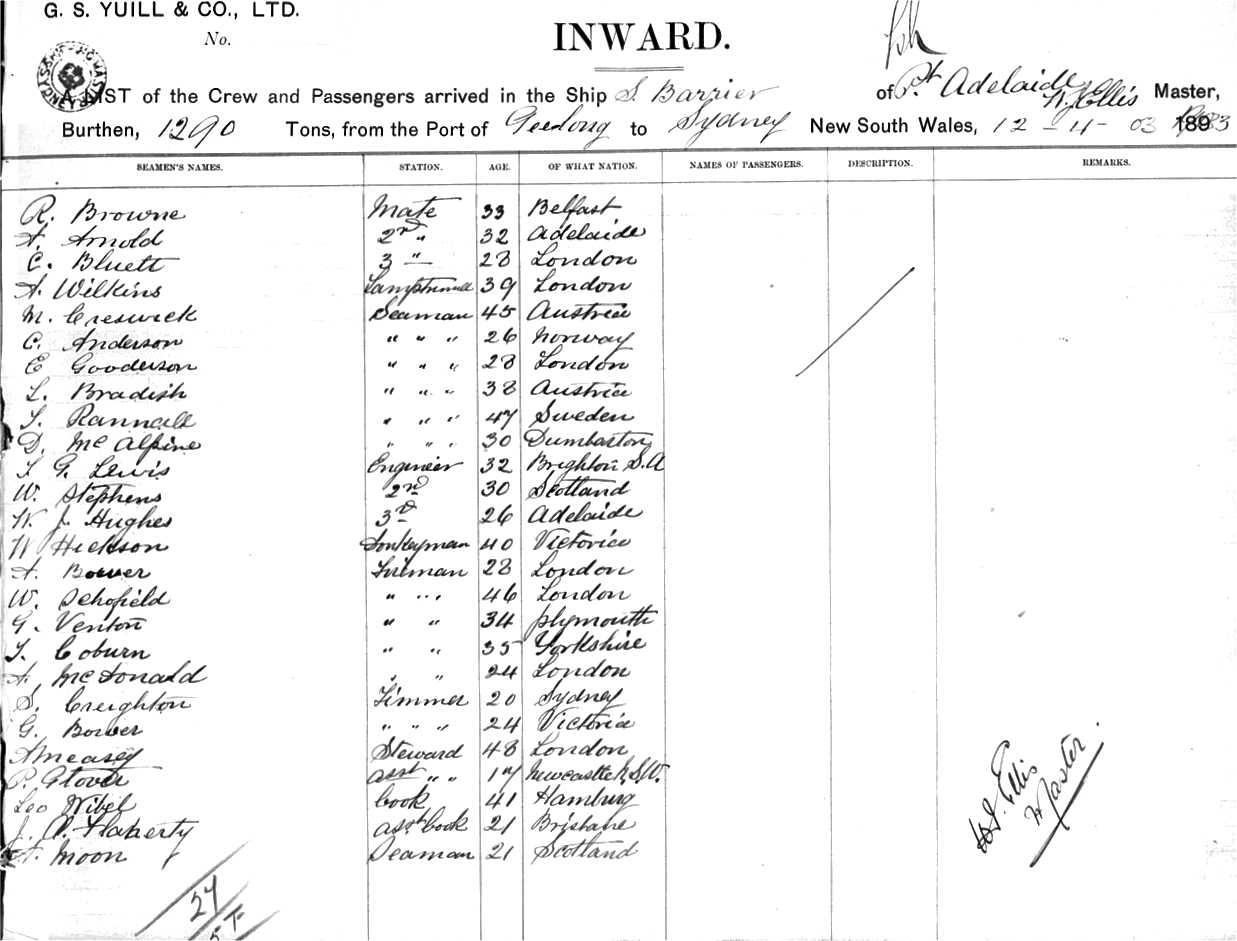 G. S. YUILL & CO., LTD.
No.
INWARD.
A LIST of the Crew and Passengers arrived in the Ship S. Barrier of Pt. Adelaide W. Ellis Master,
Burthen, 1290 Tons, from the Port of Geelong to Sydney New South Wales, 12 - 4 - 03 189
SEAMEN'S NAMES. STATION. AGE. OF WHAT NATION. NAMES OF PASSENGERS. DESCRIPTION. REMARKS.
R. Browne Mate 33 Belfast
A. Arnold 2nd " 32 Adelaide
C. Bluett 3 " 28 London
A. Wilkins Lamptrimmer 39 London
M. Creswick Seaman 45 Austria
C. Anderson " " " 26 Norway
E Gooderson " " " 28 London
L. Bradish " " " 38 Austria
T. Rannall " " " 47 Sweden
D. McAlpine " " " 30 Dumbarton
T. G. Lewis Engineer 32 Brighton S.A
W. Stephens 2nd 30 Scotland
W. J. Hughes 3rd 26 Adelaide
W Hickson Donkeyman 40 Victoria
A. Bower Fireman 28 London
W. Schofield " " " 46 London
G. Venton " " 34 Plymouth
T. Coburn " " 35 Yorkshire
A. McDonald " " 24 London
S. Creighton Trimmer 20 Sydney
G. Bower " " " 24 Victoria
A Measey Steward 48 London
P. Glover asst " " 17 Newcastle N.S.W.
Leo Wibel Cook 41 Hamburg
J. O. Flaherty asst Cook 21 Brisbane
A. Moon Seaman 21 Scotland
W. J. Ellis
Master.
27